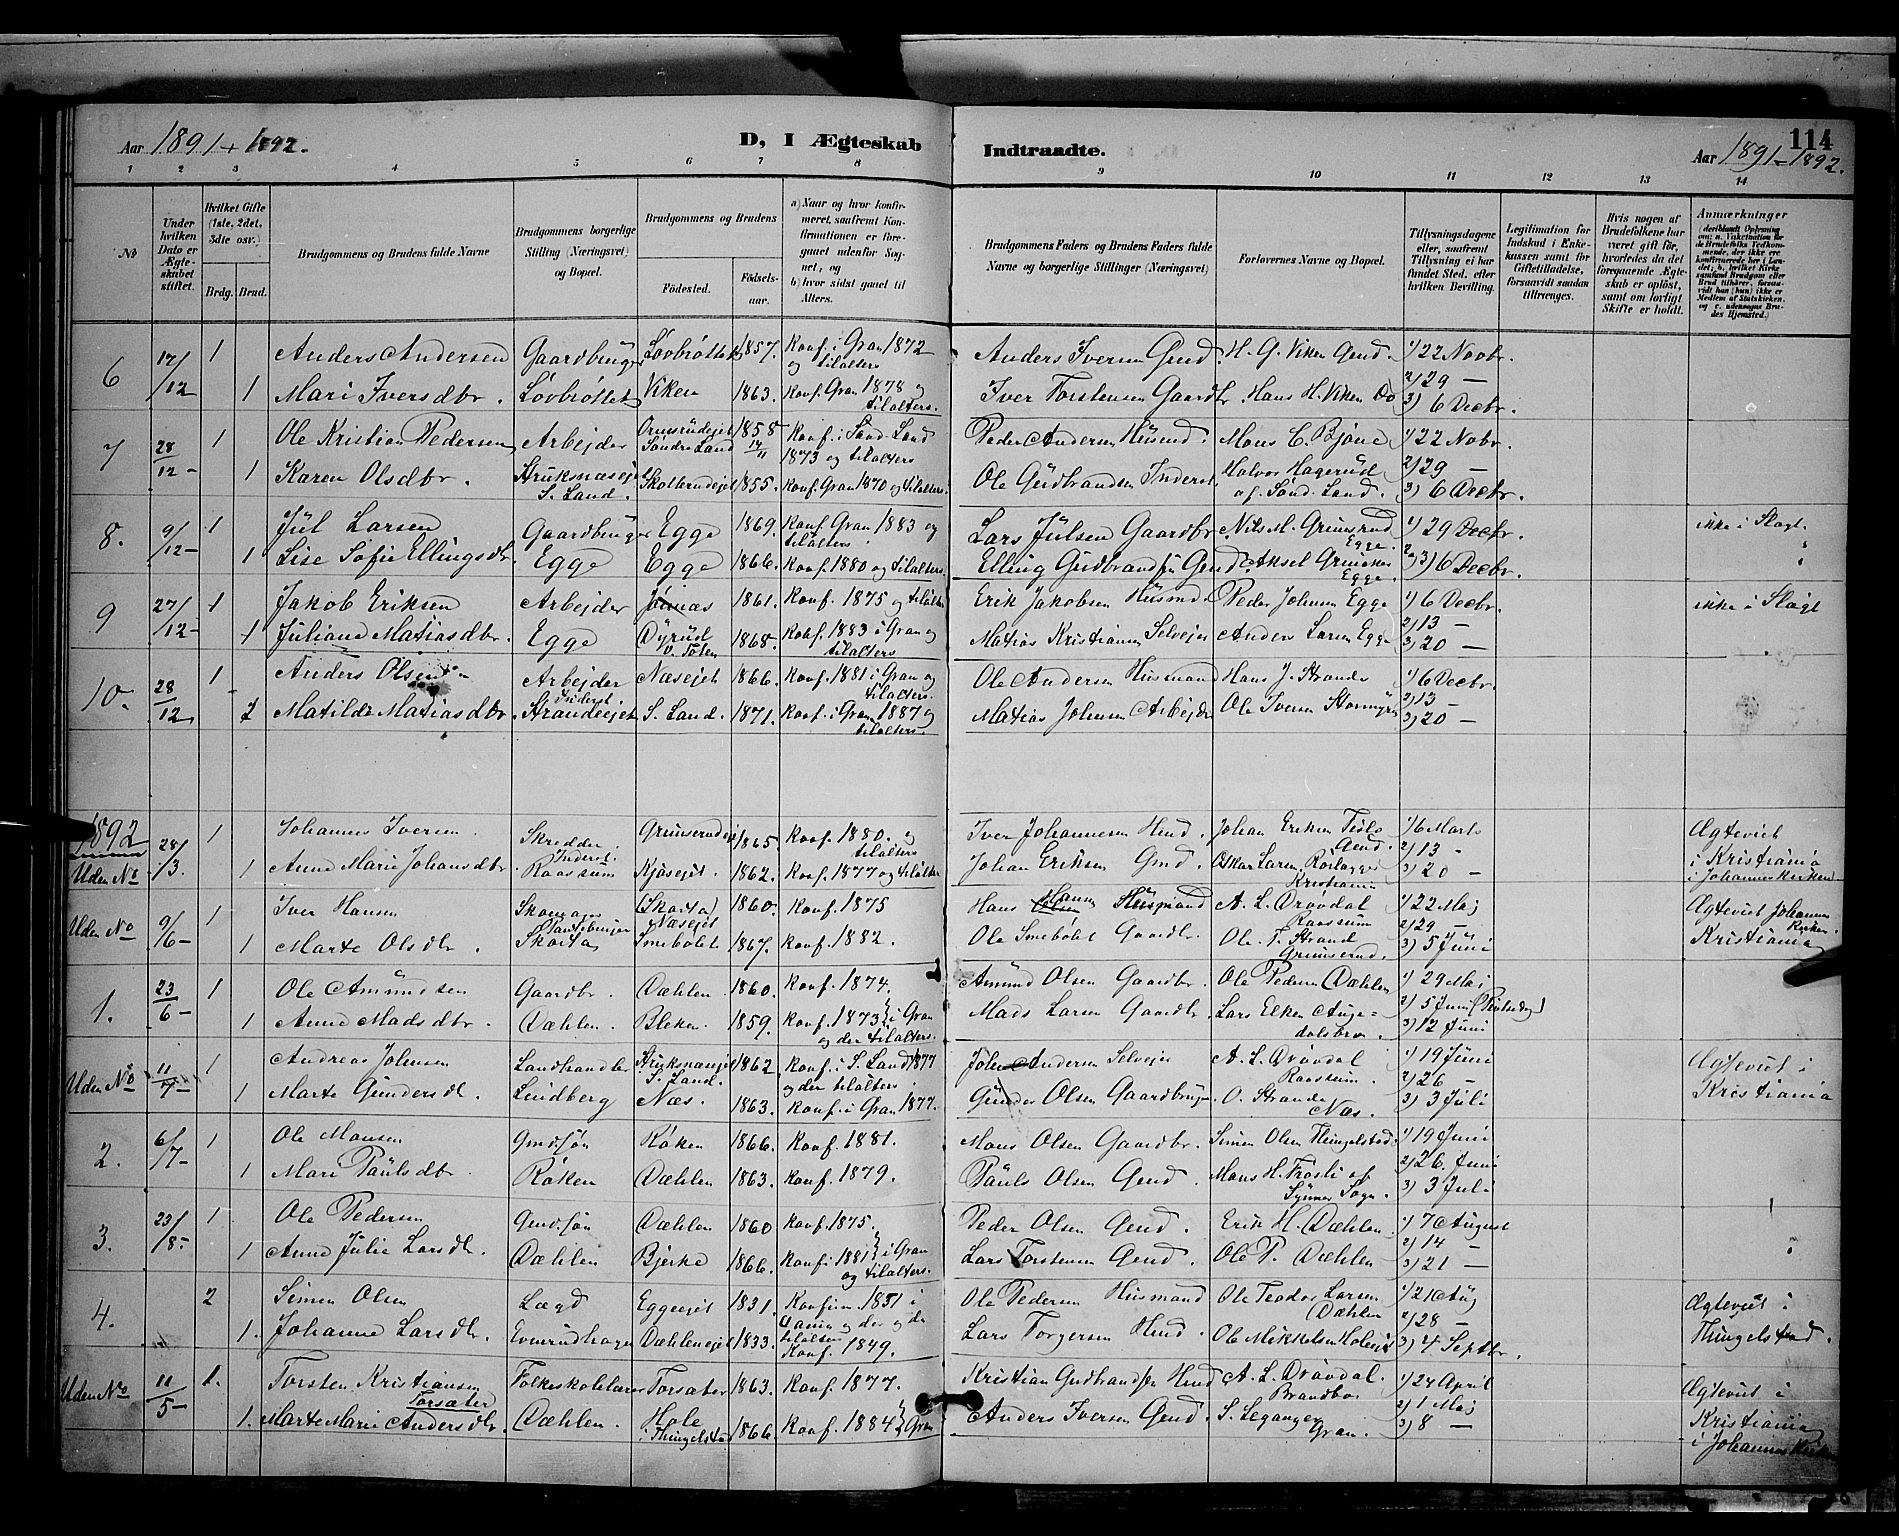 Aar 1891 + 1892.
D, I Ægteskab
Indtraadte.
114
Aar 1891-1892.
1 2 3 4 5 6 7 8 9 10 11 12 13 14
No
Under hvilken Dato er Ægteskabet stiftet.
Hvilket Gifte (1ste, 2det, 3die osv.)
Brdg. Brud.
Brudgommens og Brudens fulde Navne
Brudgommens borgerlige Stilling (Næringsvei) og Bopæl.
Brudgommens og Brudens
Fødested.
Fødselsaar.
a) Naar og hvor konfirmeret, saafremt Konfirmationen er foregaaet udenfor Sognet, og
b) hvor sidst gaaet til Alters.
Brudgommens Faders og Brudens Faders fulde Navne og borgerlige Stillinger (Næringsvei)
Forlovernes Navne og Bopæl.
Tillysningsdagene eller, saafremt Tillysning ei har fundet Sted, efter hvilken Bevilling.
Legitimation for Indskud i Enkekassen samt for Giftetilladelse, forsaavidt saadan tiltrænges.
Hvis nogen af Brudefolkene har været gift før, hvorledes da det foregaaende Ægteskab er opløst, samt om lovligt Skifte er holdt.
Anmærkninger
(deriblandt Oplysning om: a. Vakcination for de Brudefolks Vedkommende, der ikke ere konfirmerede her i Landet; b. hvilket Kirkesamfund Brudgom eller Brud tilhører, forsaavidt han (hun) ikke er Medlem af Statskirken, og c. udensogns Brudes Hjemsted.)
6 17/12 1 Anders Andersen Gaardbruger Løvbrøttet 1857. Konf. i Gran 1872 og tilalters Anders Iversen Gmd. H. G. Viken Gmd. 1) 22 Novbr.
1 Mari Iversdbr. Løvbrøttet Viken 1863. Konf. Gran 1878 og tilalters. Iver Torstensen Gaardbr. Hans H. Viken Do 2) 29 — 3) 6 Decbr.
7 28/12 1 Ole Kristian Pedersen Arbejder Søndre Land 1858 14/11 Konf. i Sønd. Land 1873 og tilalters Peder Andersen Husmd. Mons C. Bjöne 1) 22 Nobr.
1 Karen Olsdbr. S. Land. 1855. Konf. Gran 1870 og tilalters. Ole Gudbrandsen Inderst Halvor Hagerud af Sønd. Land. 2) 29 — 3) 6 Decbr.
8. 9/12 1 Jul Larsen Gaardbruger Egge 1869. Konf. Gran 1883 og tilalters Lars Julsen Gaardbr. Nils M. Grimsrud Egge. 1) 29 Decbr. ikke i Slagt
1 Lise Sofie Ellingsdbr. Egge Egge 1866. Konf. 1880 og tilalters. Elling Gudbrandsen Gmd. Aksel Egge. 2) 3) 6 Decbr.
9 27/12 1 Jakob Eriksen Arbejder 1861. Konf. 1875 og tilalters Erik Jakobsen Husmd. Peder Johnsen Egge 1) 6 Decbr. ikke i Slagt
1 Juliane Matiasdbr. Egge Dyrud V. Toten 1868. Konf. 1883 i Gran og tilalters Matias Kristiansen Selvejer Anders Larsen Egge 2) 13 — 3) 20 —
10. 28/12 1 Anders Olsen Arbejder Inderst. Næsejet 1866. Konf. 1881 i Gran og tilalters. Ole Andersen Husmand Hans J. Strande 1) 6 Decbr.
1 Matilde Matiasdbr. Strandeejet S. Land. 1871. Konf. i Gran 1887 og tilalters. Matias Johnsen Arbejder Ole Iversen 2) 13 — 3) 20 —
1892
Uden No 28/3. 1 Johannes Iversen. Skredder Inderst. Grimsrudejet 1865 Konf. 1880. og tilalters Iver Johannesen Hmd. Johan Eriksen Gmd. 1) 6 Marts Ægteviet
1 Anne Marie Johansdbr. Raassum Kjosejet. 1862. Konf. 1877 og tilalters Johan Eriksen Gmd. Oskar Larsen Kristiania 2) 13 - 3) 20 — i Kristiania i Johanneskirken
Uden No 9/6 1 Iver Hansen Skomager (Skarta) Næsejet 1860. Konf. 1875 Hans Hansen Husmand A. L. Drövdal Raassum 1) 22 Maj Ægteviet Johannes Kirken
1 Marte Olsdbr. Skarta Smebölet 1867. Konf. 1882. Ole Smebölet Gaardbr. Ole T. Strand Grimsrud. 2) 29 — 3) 5 Juni Kristiania
1. 23/6 1 Ole Amundsen Gaardbr. Dæhlen. 1860. Konf. 1874. Amund Olsen Gaardbr. Ole Pedersen Dæhlen 1) 29 Maj
1 Anne Madsdbr. Dæhlen. Bleken. 1859. Konf. 1873 i Gran og der tilalters. Mads Larsen Gaardbr. Lars Elken Augedalsbro. 2) 5 Juni 3) 12 Juni
Uden No 11/7 1 Andreas Johnsen Landhandler S. Land. 1862 Konf. i S. Land 1877 og der tilalters John Andersen Selvejer A. L. Drövdal Raassum. 1) 19 Juni Ægteviet i
1 Marte Gundersdbr. Lindberg Næs. 1863. Konf. i Gran 1877. Gunder Olsen Gaardbruger O. Strande Næs. 2) 26 — 3) 3 Juli Kristiania
2. 6/7 1 Ole Monsen Gmdsøn Røken 1866. Konf. 1881. Mons Olsen Gaardbr. Simen Olsen Thingelstad. 1) 19 Juni
1 Mari Paulsdbr. Røken Dæhlen 1863. Konf. 1879. Pauls Olsen Gmd. Mons H. Frøsli af Synnes Sogn. 2) 26 Juni 3) 3 Juli
3. 23/8 1 Ole Pedersen Gmdsøn Dæhlen 1860 Konf. 1875. Peder Olsen Gmd. Erik H. Dæhlen 1) 7 August
1 Anne Julie Larsdbr. Dæhlen Bjerke 1866. Konf. 1881 i Gran og tilalters. Lars Torstensen Gmd. Ole P. Dæhlen 2) 14 — 3) 21 —
4. 2 Simen Olsen Lægd Eggeejet 1831. Konf. 1851 i Ole Pedersen Husmand Ole Teodor Larsen Dæhlen 1) 21 Aug Ægteviet i
1. Johanne Larsdbr. Dæhlenejet 1833. Konf. 1849. Lars Torgersen Hmd. Ole Mikkelsen 2) 28 — 3) 4 Septbr. Thingelstad.
Uden No 11/5 1. Torsten Kristiansen Torsæter Folkeskolelærer Torsæter 1863. Konf. 1877. Kristian Gudbrandsen Hmd. A. L. Drövdal. Brandbo 1) 24 April Ægteviet i
1. Marte Marie Andersdbr. Dæhlen. Hole i Thingelstad 1866. Konf. 1884 Gran Anders Iversen Gmd. S. Leganger Gran. 2) 1 Maj 3) 8 — Kristiania i Johannes Kirke